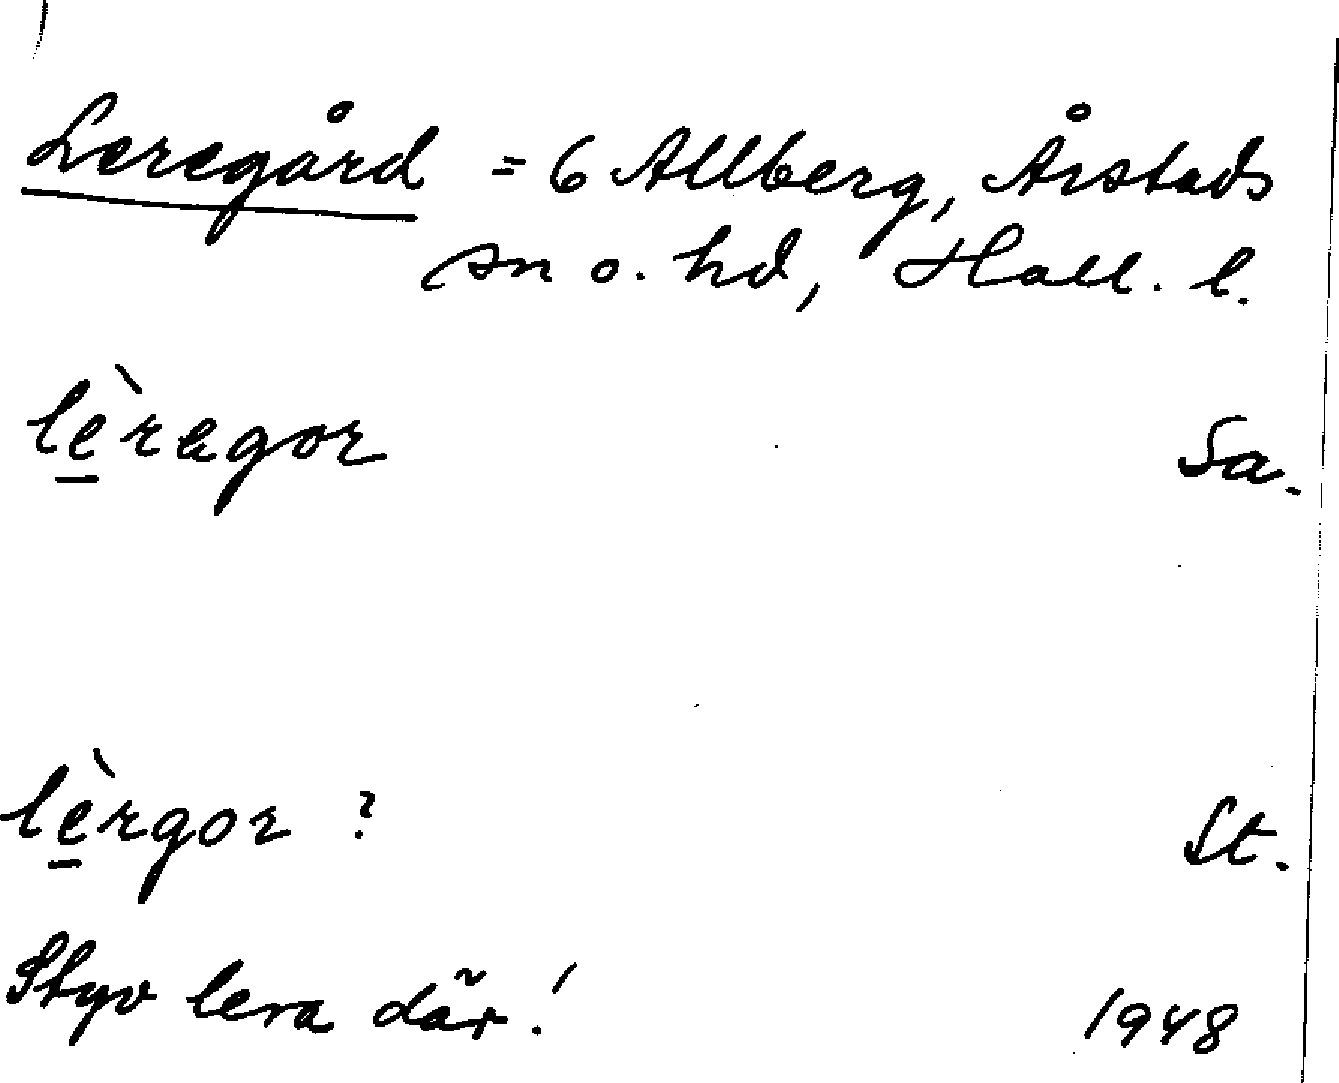 Leregård = 6 Allberg, Årstads
sn o. hd, Hall. l.
lèregor Sa.
lèrgor ? St.
Styv lera där! 1948